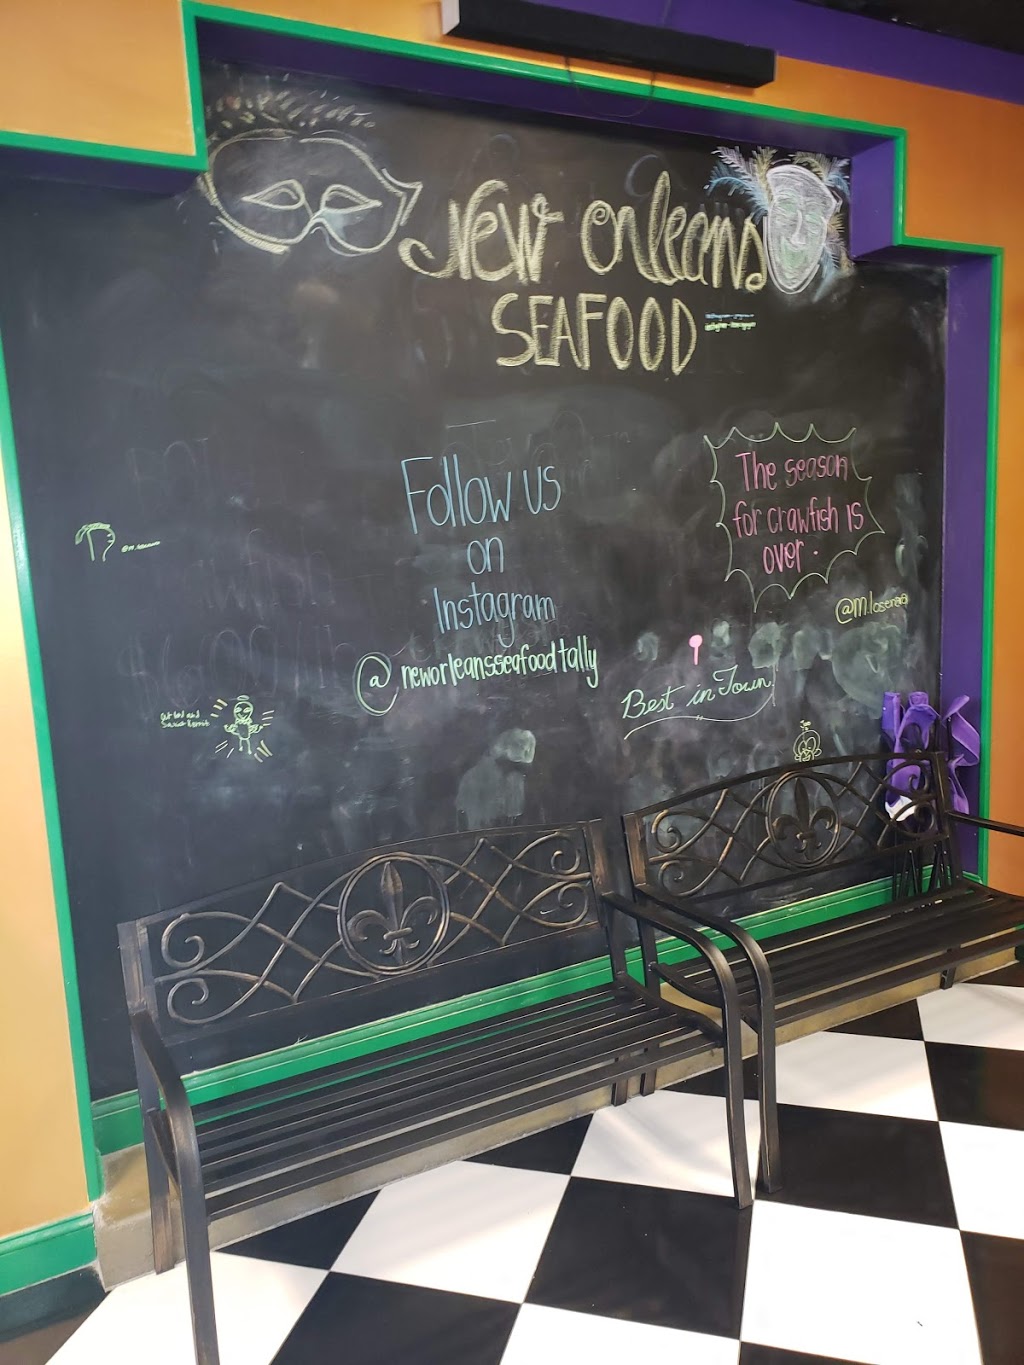 New Orleans
SEAFOOD
Follow us
on
Instagram
@neworleansseafoodtally
The season
for crawfish is
over.
Best in Town!